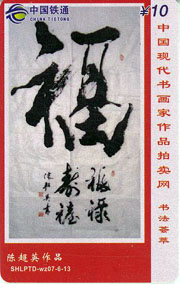 中国铁通
CHINA TIETONG
¥10
福
福禄
寿禧
陈超英书
中国现代书画家作品拍卖网 书法荟萃
陈超英作品
SHLPTD-wz07-6-13